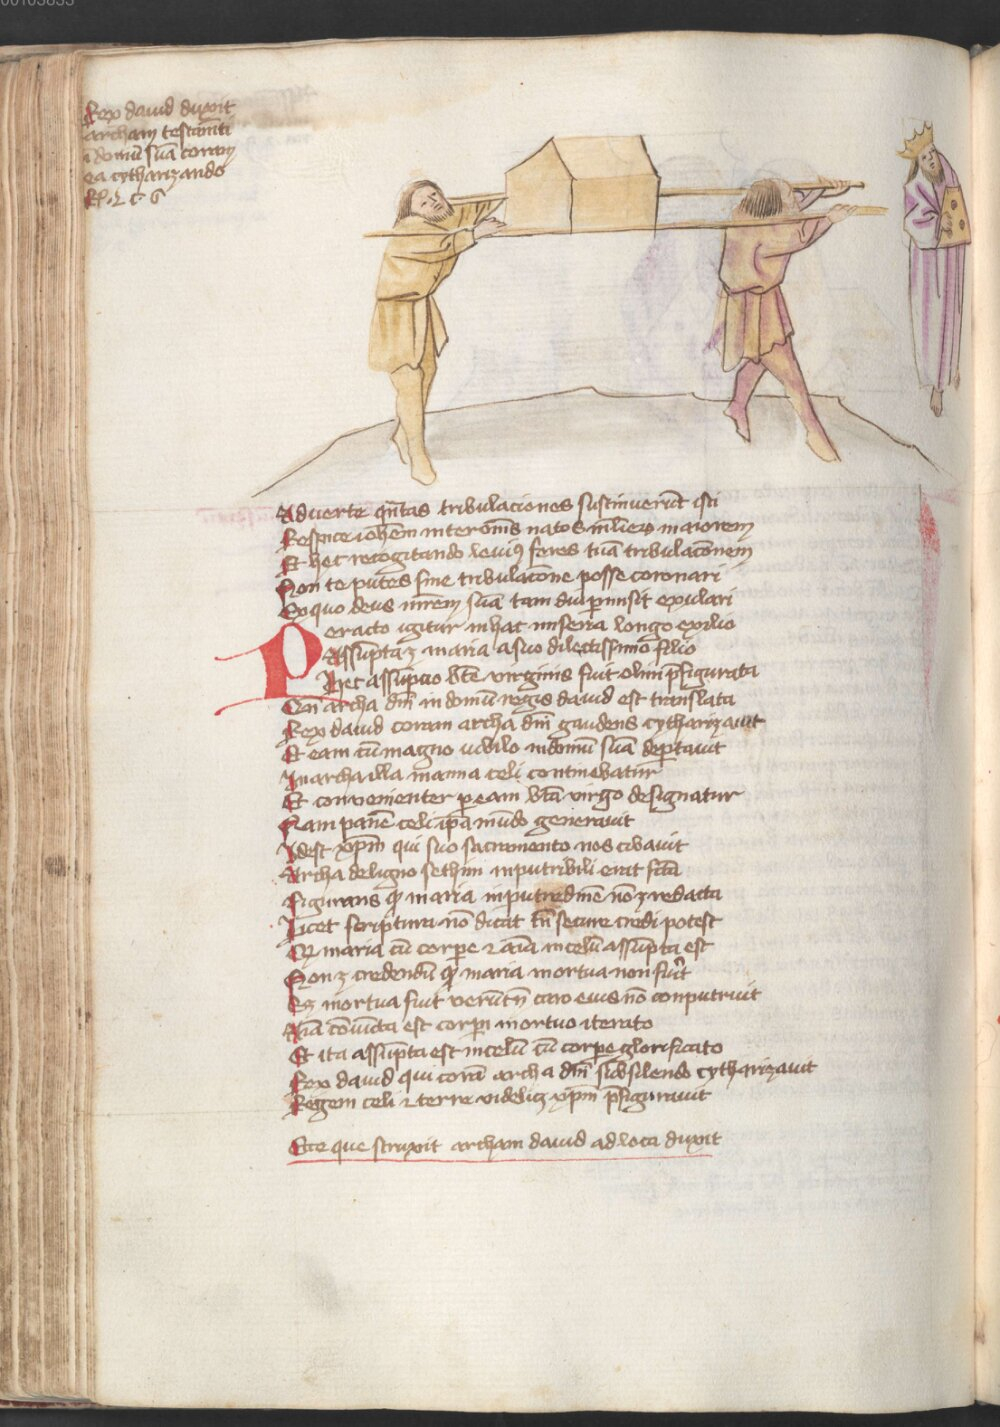 00103853
Rex dauid duxit
archam testam̄ti
ī domū suā coram
ea cytharizando
Rͤ. 2 c̊ 6
Aduerte qn̄tas tribulaciones sustinuerūt isti
Respice ioh̄em inter om̄is natos mlieꝝ maiorem
Et hec recogitando leuiꝰ feres tuā tribulac̄onem
Non te putes sine tribulac̄one posse coronari
Ex quo deus mr̄em suā tam diu ꝑmisit exulari
Peracto igitur in hac miseria longo exilio
Assūpta ꝫ maria a suo dilectissimo filio
Hec assūpcio bt̄e virginis fuit olim p̄figurata
Qn̄ archa dn̄i in domū regis dauid est translata
Rex dauid coram archa dn̄i gaudens cytharizauit
Et eam cū magno iubilo in domū suā deꝑtauit
In archa illa manna celi continebatur
Et conuenienter ꝑ eam bt̄a virgo designatur
Nam panē celi ip̄a mūdo generauit
Idest xp̄m qui suo sacramento nos cibauit
Archa de ligno sethim inputribili erat fc̄a
Figurans ꝙ maria in putredinē nō ꝫ redacta
Licet scriptura nō dicat tn̄ secure credi potest
Qꝫ maria cū corpe ⁊ aīa in celū assūpta est
Non ꝫ credendū ꝙ maria mortua non fuīt
Sꝫ mortua fuit verūtn̄ caro eius nō conputruit
Aīa cōiūcta est corpi mortuo iterato
Et ita assūpta est in celū cū corpe glorificato
Rex dauid qui corā archa dn̄i subsiliens cytharizauit
Regem celi ⁊ terre videlicꝫ xp̄m p̄figurauit
Ecce que struxit archam dauid ad loca duxit